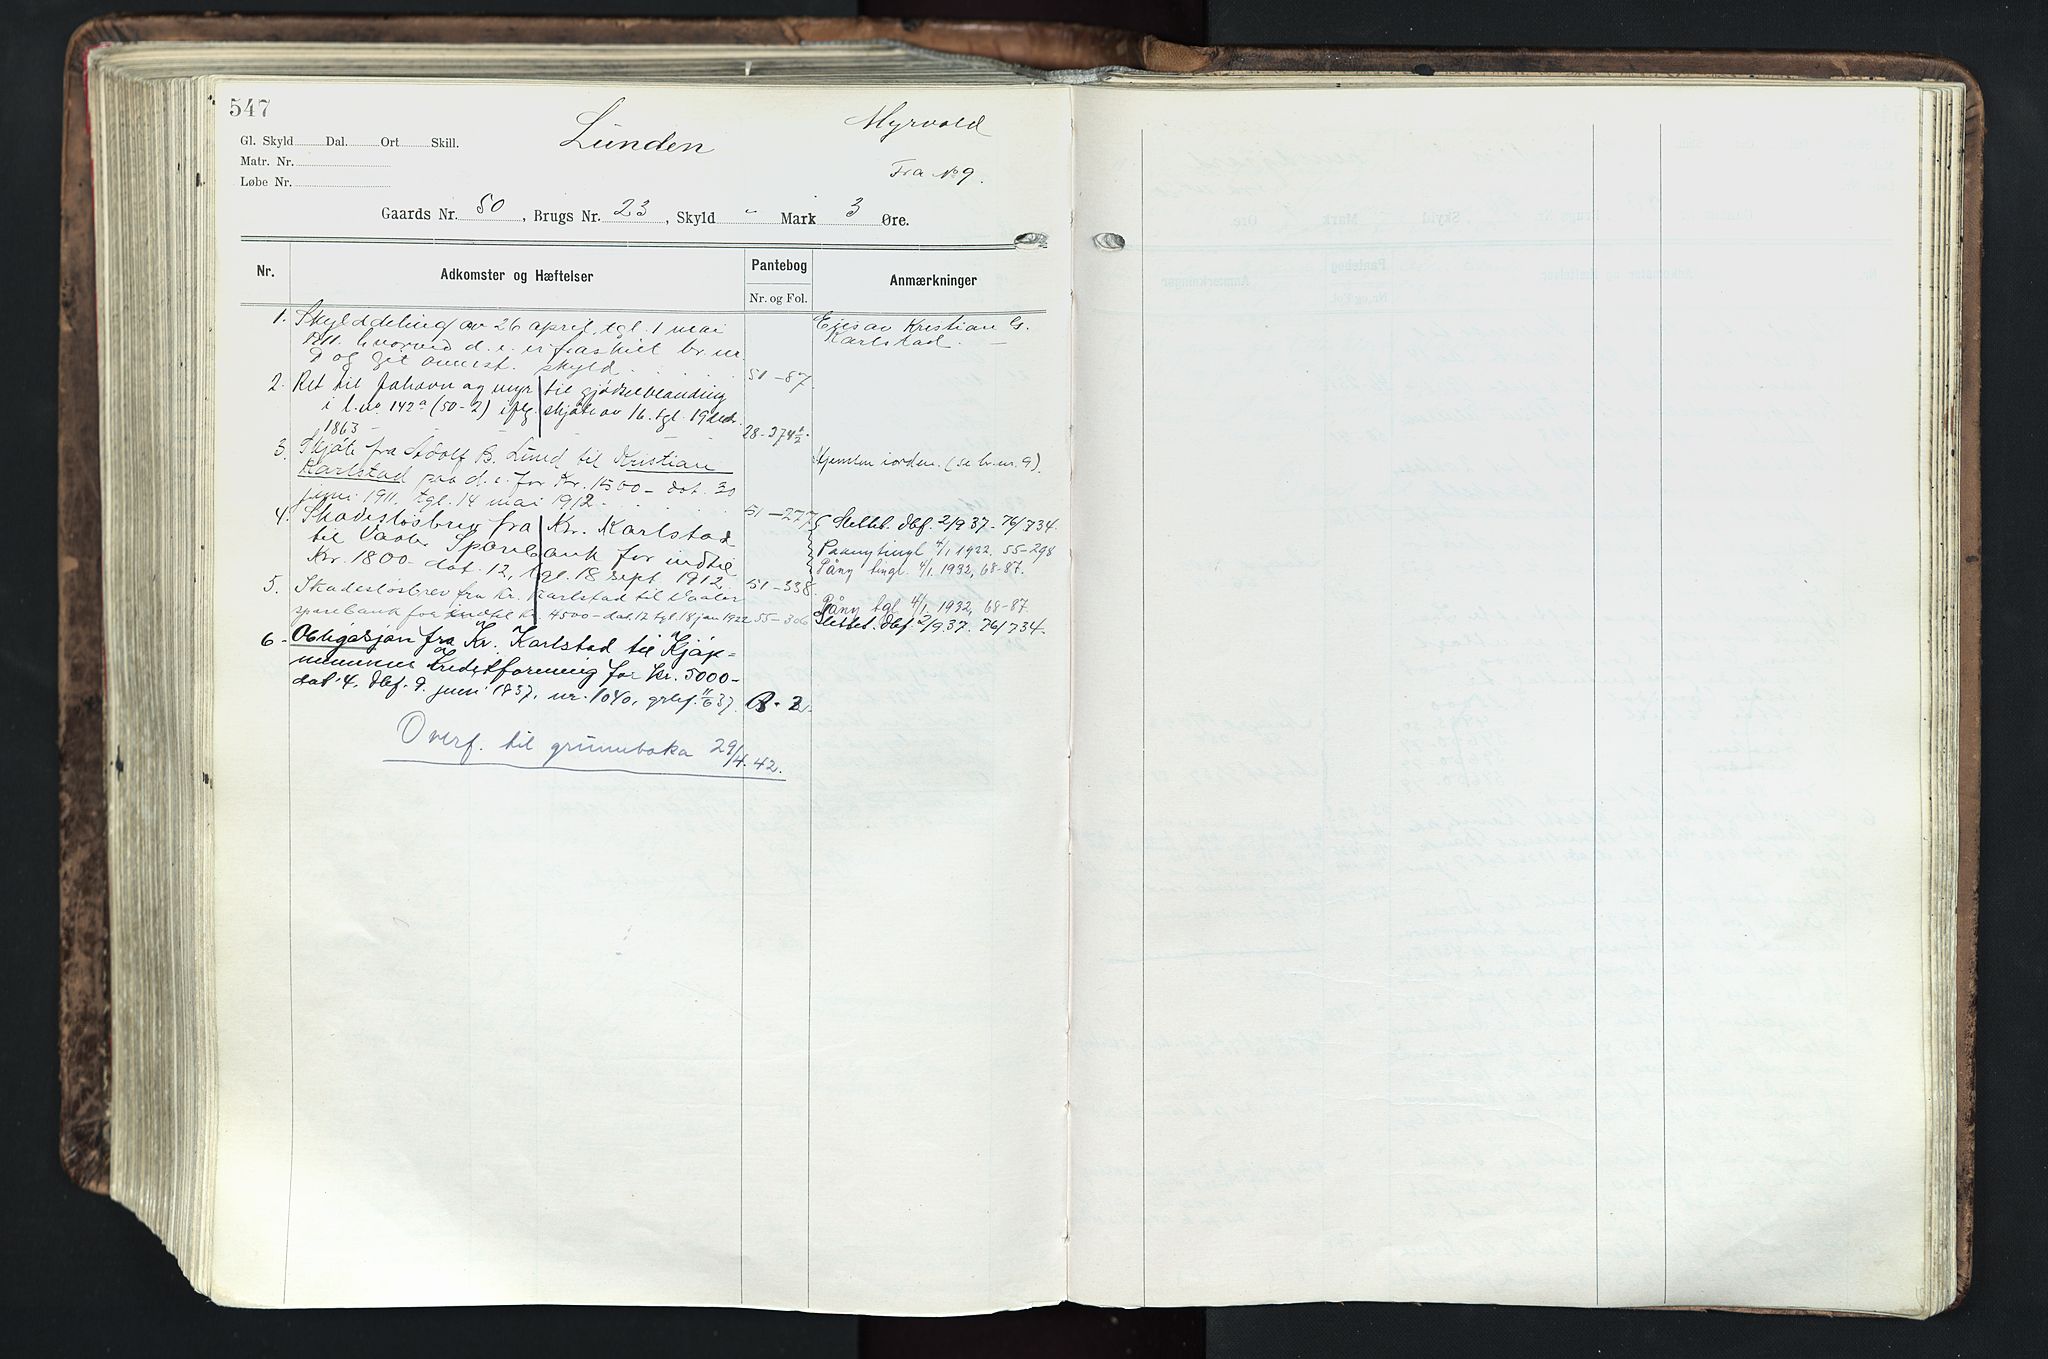 547
Lunden
Myrvold
Gl. Skyld Dal. Ort Skill.
Matr. Nr.
Løbe Nr.
Fra No 9.
Gaards Nr. 50, Brugs Nr. 23, Skyld " Mark 3 Øre.
Nr. Adkomster og Hæftelser Pantebog Anmærkninger
Nr. og Fol.
1. Skylddeling av 26 april, tgl. 1 mai
1911. hvorved d. e. er fraskilt br. nr.
9 og git ovenst. skyld. 51-87
Eies av Kristian G.
Karlstad.
2. Ret til havn og myr til gjødselblanding
i l. no 142a (50-2) iflg. skjøte av 16. tgl. 19 decbr.
1863 28-374½
3. Skjøte fra Adolf B. Lund til Kristian
Karlstad paa d. e. for Kr. 1500- dat. 30
juni 1911. tgl. 14 mai 1912. 51-277
Hjemlen iorden. (se br. nr. 9).
4. Skadesløsbrev fra Kr. Karlstad
til Vaaler Sparebank for indtil
Kr. 1800- dat. 12, tgl. 18 sept. 1912. 51-338
Slettet. dbf. 2/9 37- 76/734.
Paanytingl 4/1 1922. 55-298
Pány tingl. 4/1. 1932, 68-87.
5. Skadesløsbrev fra Kr. Karlstad til Vaaler
sparebank for indtil kr 4500- dat. 12 tgl 18 jan 1922 55-306
Pány tgl 4/1. 1932, 68-87.
Slettet. dbf. 2/9 37. 76/734.
6. Obligasjon fra Kr. Karlstad til Kjøp-
mennenes Kredittforening for kr. 5000-
dat. 4, dbf. 9. juni 1937, nr. 1040, grbf. 11/6 37. B. 2
Overf. til grunnboka 29/4. 42.